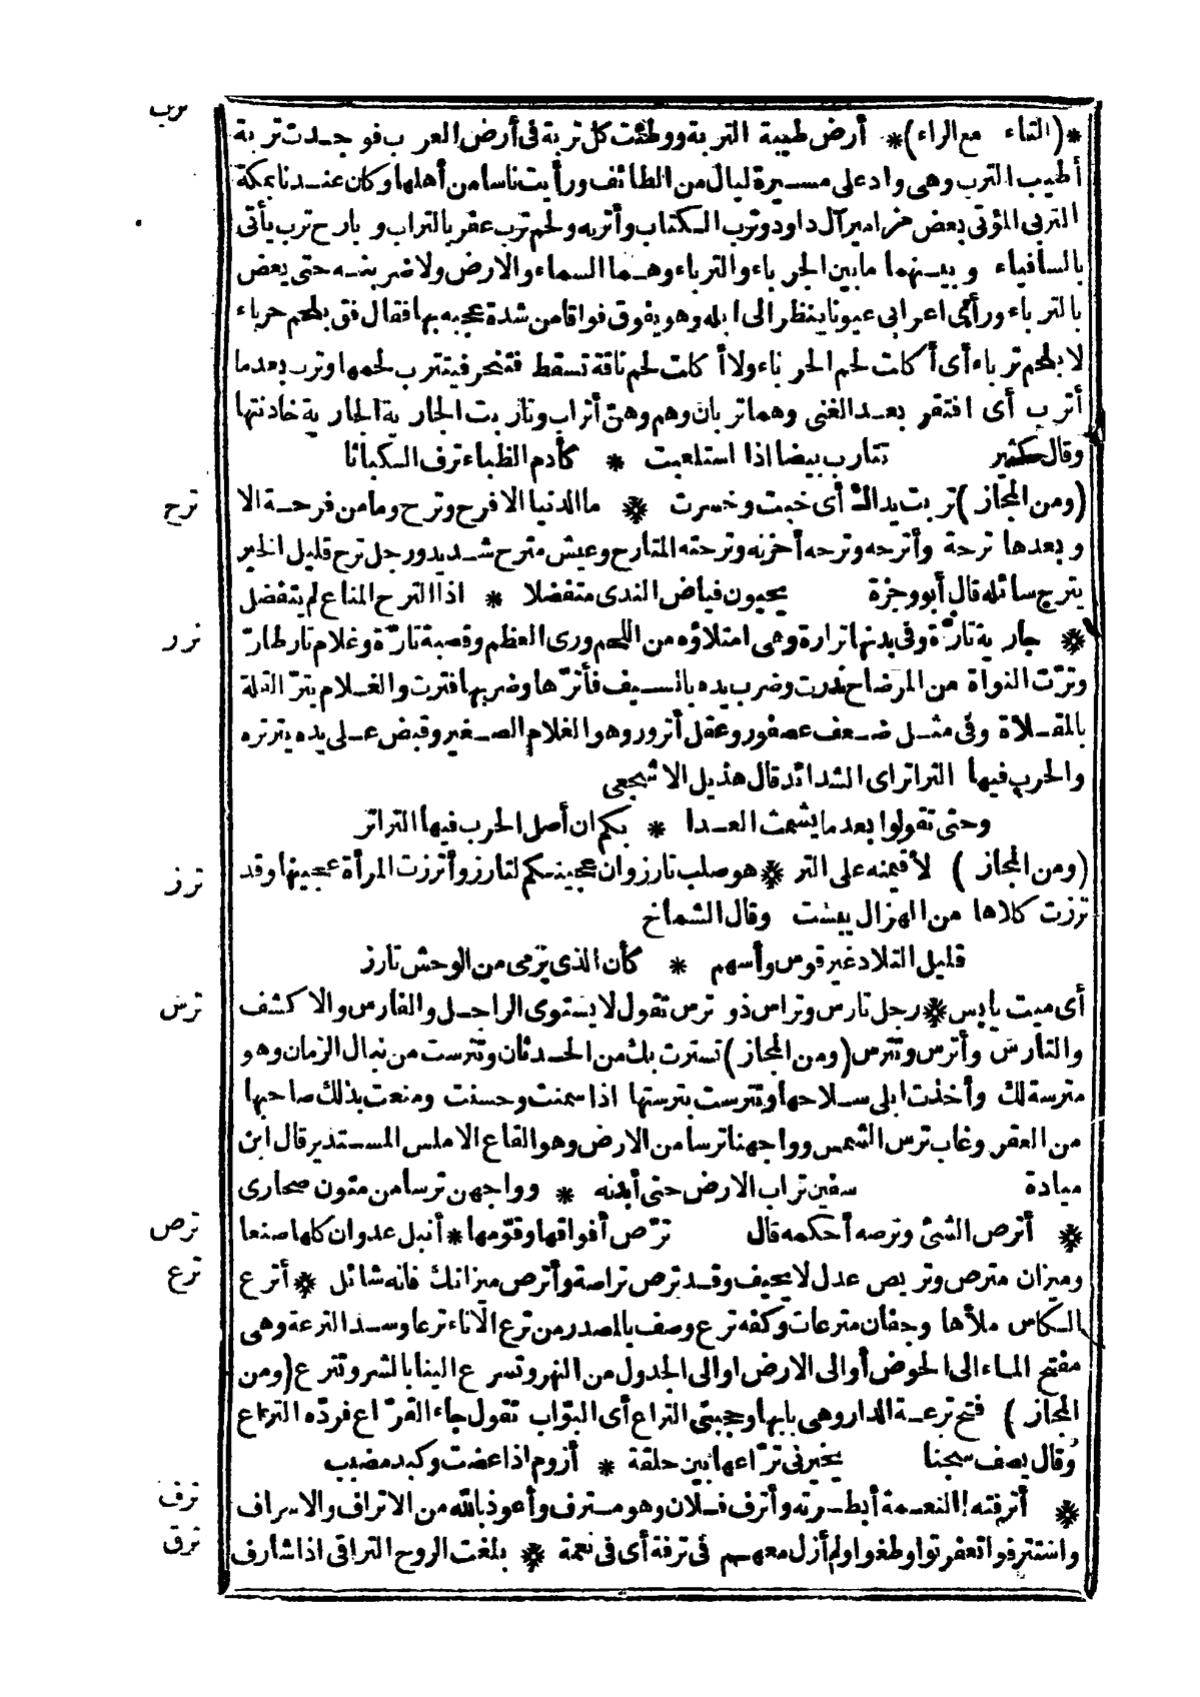 ترب
*(التاء مع الراء)* أرض طيبة التربة ووطئت كل تربة فى أرض العرب فوجدت تربة
أطيب الترب وهى واد على مسيرة ليال من الطائف ورأيت ناسا من أهلها وكان عندنا بمكة
التربى المؤتى بعض مزامير آل داود وترب الكتاب وأتربه ولحم ترب عفر بالتراب وبارح ترب يأتى
بالسافياء وبينهما ما بين الجرباء والترباء وهما السماء والارض ولاضربنه حتى يعض
بالترباء ورأى اعرابى عيونا ينظر الى ابله وهو يفوق فواقا من شدة عجبه بها فقال فق بلحم حرباء
لا بلحم ترباء أى أكلت لحم الحرباء ولا أكلت لحم ناقة تسقط فتنحر فيتترب لحمها وترب بعدما
أترب أى افتقر بعد الغنى وهما تربان وهم وهنّ أتراب وتاربت الجارية الجارية خادنتها
وقال كثير تتارب بيضا اذا استلعبت * كأدم الظباء ترف الكباثا
ترح
(ومن المجاز) تربت يداك أى خبت وخسرت * ما الدنيا الا فرح وترح وما من فرحة الا
وبعدها ترحة وأترحه وترحه أحزنه وترحته المتارح وعيش مترح شديد ورجل ترح قليل الخير
يترح سائله قال أبو وجزة يحيون فياض الندى متفضلا * اذا الترح المناع لم يتفضل
ترر
* جارية تارّة وفى بدنها ترارة وهى امتلاؤه من اللحم ورى العظم وقصبة تارّة وغلام تار طارّ
وترّت النواة من المرضاح ندرت وضرب يده بالسيف فأترّها وضربها فترت والغلام يترّ القلة
بالمقلاة وفى مثل ضعف عصفور وعقل أترور وهو الغلام الصغير وقبض على يده يترتره
والحرب فيها التراتر اى الشدائد قال هذيل الاشجعى
وحتى تقولوا بعد ما يشمت العدا * بكم ان أصل الحرب فيها التراتر
ترز
(ومن المجاز) لأقيمنه على التر * هو صلب تارز وان عجينكم لتارز وأترزت المرأة عجينها وقد
ترزت كلاها من الهزال يبست وقال الشماخ
قليل التلاد غير قوس وأسهم * كأن الذى يرمى من الوحش تارز
ترس
أى ميت يابس * رجل تارس وتراس ذو ترس تقول لا يستوى الراجل والفارس والاكشف
والتارس وأترس وتترس (ومن المجاز) تسترت بك من الحدثان وتترست من نبال الزمان وهو
مترسة لك وأخذت ابلى سلاحها وتترست بترستها اذا سمنت وحسنت ومنعت بذلك صاحبها
من العقر وغاب ترس الشمس وواجهنا ترسا من الارض وهو القاع الاملس المستدير قال ابن
ميادة سفين تراب الارض حتى أبدنه * وواجهن ترسا من متون صحارى
ترص
* أترص الشئ وترصه أحكمه قال ترّص أفواقها وقوّمها * أنبل عدوان كلها صنعا
ترع
وميزان مترص وتريص عدل لا يحيف وقد ترص تراصة وأترص ميزانك فانه شائل * أترع
الكاس ملأها وجفان مترعات وكفه ترع وصف بالمصدر من ترع الاناء ترعا وسد الترعة وهى
مفتح الماء الى الحوض أو الى الارض او الى الجدول من النهر وتسرع الينا بالشر وتترع (ومن
المجاز) فتح ترعة الدار وهى بابها وحجبنى التراع أى البوّاب تقول جاء القرّاع فردّه التراع
وقال يصف سجنا يخيرنى ترّاعها بين حلقة * أزوم اذا عضت وكبد مضبب
ترف
* أترفته النعمة أبطرته وأترف فلان وهو مترف وأعوذ بالله من الاتراف والاسراف
ترق
واستترفوا تعفرتوا وطغوا ولم أزل معهم فى ترفة أى فى نعمة * بلغت الروح التراقى اذا شارف